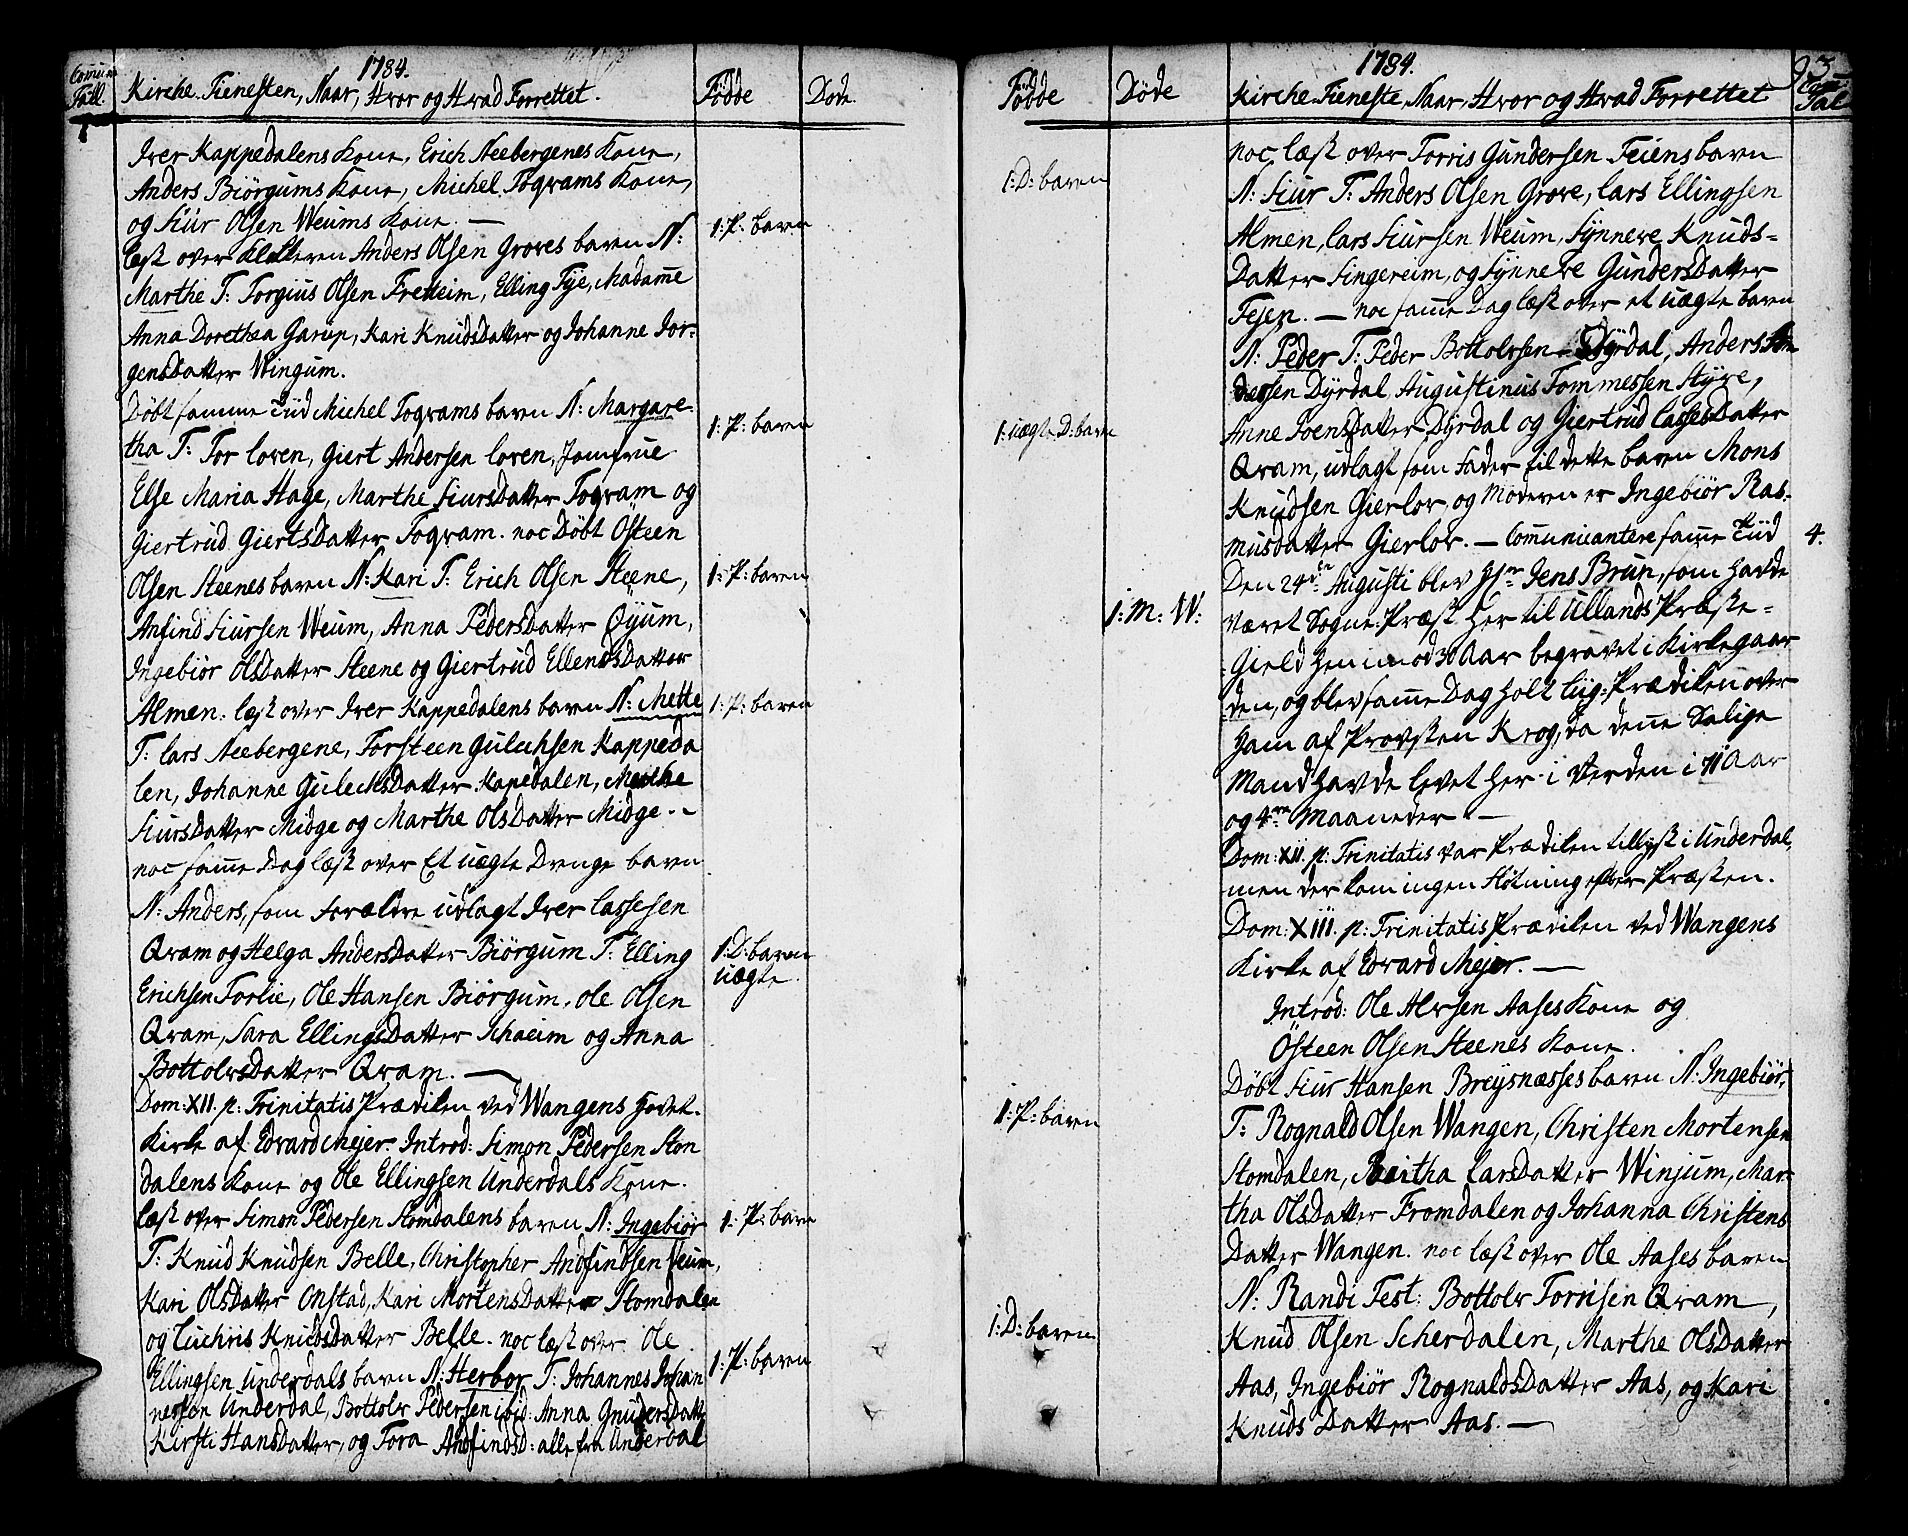 1784.
Comun
Tall.
Kirche Tienesten, Naar, Hvor og Hvad Forrettet.
Fødde
Døde
Iver Kappedalens Kone, Erich Neebergenes Kone,
Anders Biörgums Kone, Michel Toqvams Kone,
og Siur Olsen Weums Kone. —
læst over Klokkeren Anders Olsen Groves barn N:
1: P: barn
Marthe T: Torgius Olsen Fretteim, Elling Tye, Madame
Anna Dorethea Garup, Kari Knudsdatter og Johanne Jor-
gensdatter Wingum.
Döbt samme tiid Michel Toqvams barn N: Margare-
1: P: barn
tha T: Tor Loven, Giert Andersen Loven, Jomfrue
Else Maria Hage, Marthe Siursdatter Toqvam og
Giertrud Giertsdatter Toqvam. noc Döbt Östeen
Olsen Steenes barn N: Kari T: Erich Olsen Steene,
1: P: barn
Anfind Siursen Weum, Anna Pedersdatter Öyum,
Ingebiör Olsdatter Steene og Giertrud Ellensdatter
Almen. læst over Iver Kappedalens barn N: Mette
1: P: barn
T: Lars Neebergene, Torsteen Gulichsen Kappeda
len, Johanne Gulecksdatter Kapedalen, Marthe
Siursdatter Midge og Marthe Olsdatter Midge. —
noc samme Dag læst over Et uægte Drenge barn
N: Anders, som Forældre udlagt Iver Lassesen
Qvam og Helga Andersdatter Biörgum T: Elling
1: D: barn
uægte
Erichsen Forlie, Ole Hansen Biörgum, Ole Olsen
Qvam, Sara Ellingsdatter Schaeim og Anna
Bottolvsdatter Qvam. —
Dom: XII. p: Trinitatis Prædiken ved Wangens Hovet-
Kirke af Edvard Mejer. Introd: Simon Pedersen Stom
dalens Kone og Ole Ellingsen Underdals Kone.
læst over Simon Pedersen Stomdalens barn N: Ingebiör
1: P: barn
T: Knud Knudsen Belle, Christopher Andfindsen Veum,
Kari Olsdatter Onstad, Kari Mortensdatter Stomdalen
og Luchris Knudsdatter Belle. noc læst over Ole
Ellingsen Underdals barn N: Herbor T: Johannes Johan
1: P: barn
nessen Underdal, Bottolv Pedersen ibid: Anna Gundersdatt
Kirsti Hansdatter, og Tora Andfindsd: alle fra Underdal
1784.
93
Fødde
Døde
Kirche Tieneste, Naar, Hvor og Hvad Forrettet
Com
Tal
noc læst over Torris Gundersen Feiens barn
1: D: barn
N: Siur T: Anders Olsen Grove, Lars Ellingsen
Almen, Lars Siursen Weum, Synneve Knuds-
Datter Singereim, og Synneve Gundersdatter
Fejen. — noc samme Dag læst over et uægte barn
N: Peder T: Peder Bottolvsen Dyrdal, Anders An
dersen Dyrdal, Augustinus Tommessen Styve,
Anne Joensdatter Dyrdal og Giertrud Lassesdatter
1: uægte D: barn
Qvam, udlagt som Fader til dette barn Mons
Knudsen Gierlov og Moderen er Ingebiör Ras-
musdatter Gierlov. — Communicantere samme tiid
4.
Den 24de Augusti blev Hr Jens Brun, som havde
været Sogne Præst her til Ullands Præste-
1: M: W:
Gield hen imod 30 Aar begravet i Kirkegaar
den, og blev samme Dag holt Liig: Prædiken over
ham af Provsten Krog, da denne Salige
Mand havde levet her i Verden i 71 Aar
og 4re Maaneder —
Dom: XII. p: Trinitatis var Prædiken tillyst i Underdal,
men der kom ingen Skötning efter Præsten.
Dom: XIII. p: Trinitatis Prædiken ved Wangens
Kirke af Edvard Mejer. —
Introd: Ole Alvsen Aases Kone og
Östeen Olsen Steenes Kone.
Döbt Siur Hansen Breysnæsses barn N: Ingebiör,
1: P: barn
T: Rognald Olsen Wangen, Christen Mortensen
Stomdalen, Britha Larsdatter Winjum, Mar-
tha Olsdatter Fromdalen og Johanna Christens
Datter Wangen. noc læst over Ole Aases barn
N: Randi Test: Bottolv Torrisen Qvam,
1: D: barn
Knud Olsen Scherdalen, Marthe Olsdatter
Aas, Ingebiör Rognaldsdatter Aas, og Kari
Knuds Datter Aas. —